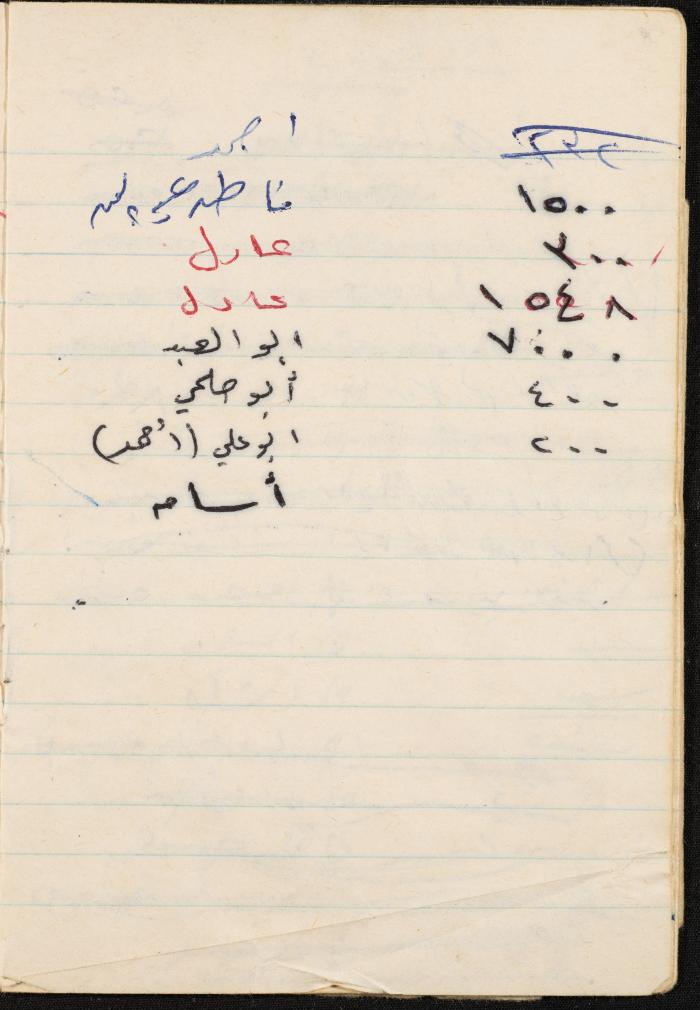 امجد
١٥٠٠ فاطمه
٣٠٠ عادل
١٥٤٨ عادل
٧٠٠٠ ابو العبد
٤٠٠ أبو حلمي
٢٠٠ ابو علي (أحمد)
أسامه